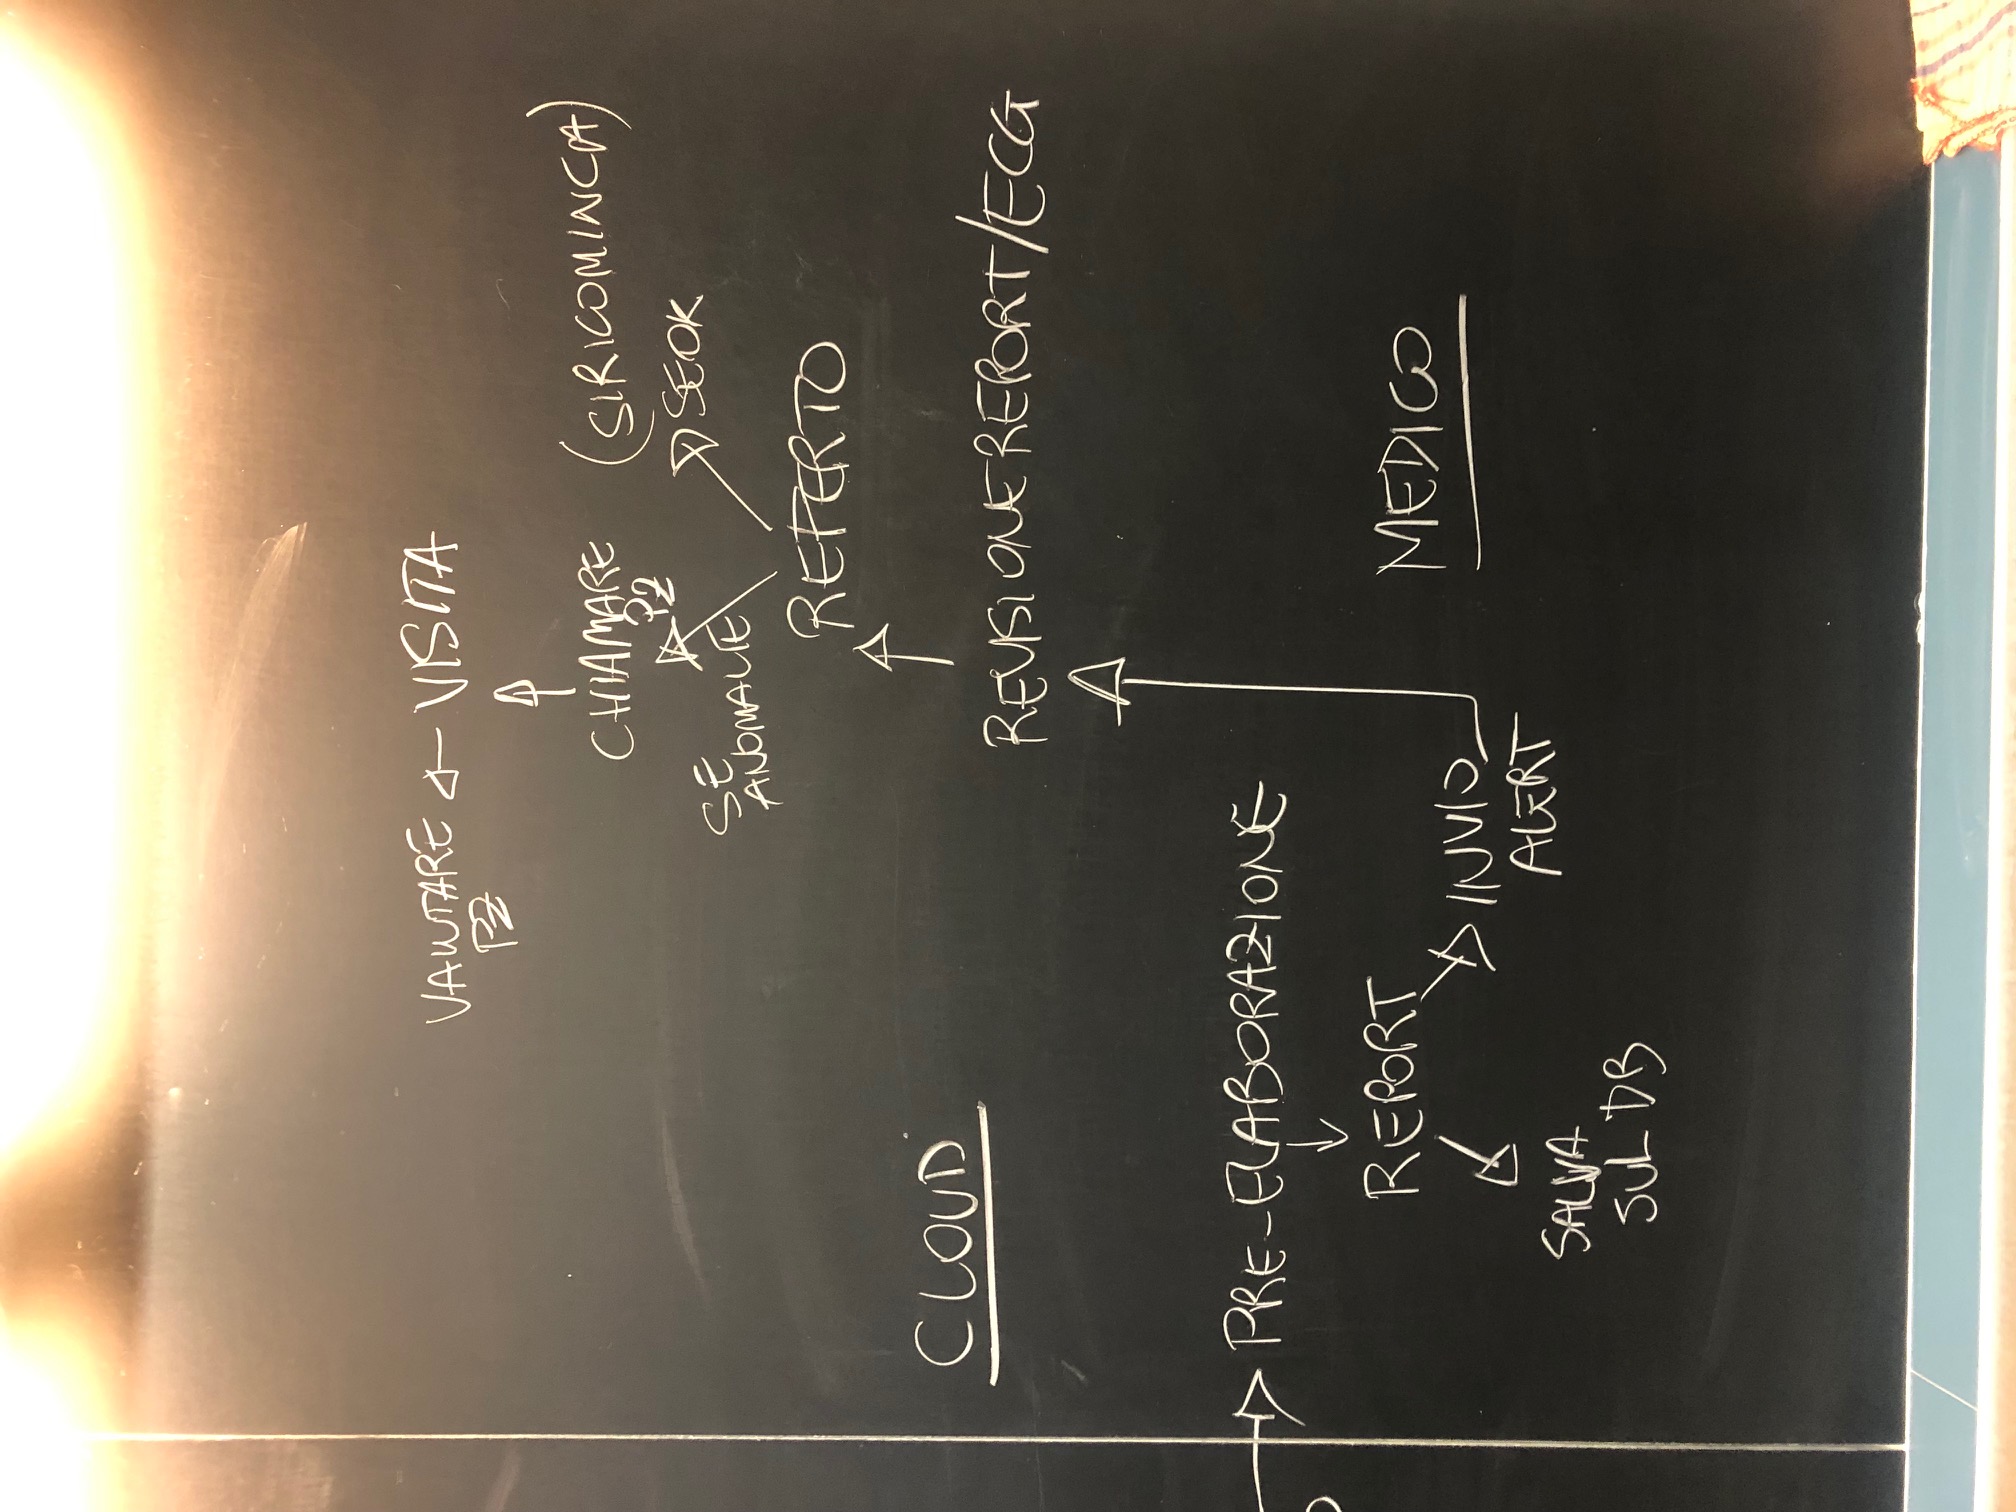 VALUTARE
PZ
VISITA
CHIAMARE
PZ
(SI RICOMINCIA)
SE
ANOMALIE
SE OK
REFERTO
REVISIONE REPORT/ECG
CLOUD
MEDICO
PRE-ELABORAZIONE
REPORT
INVIO
ALERT
SALVA
SUL DB